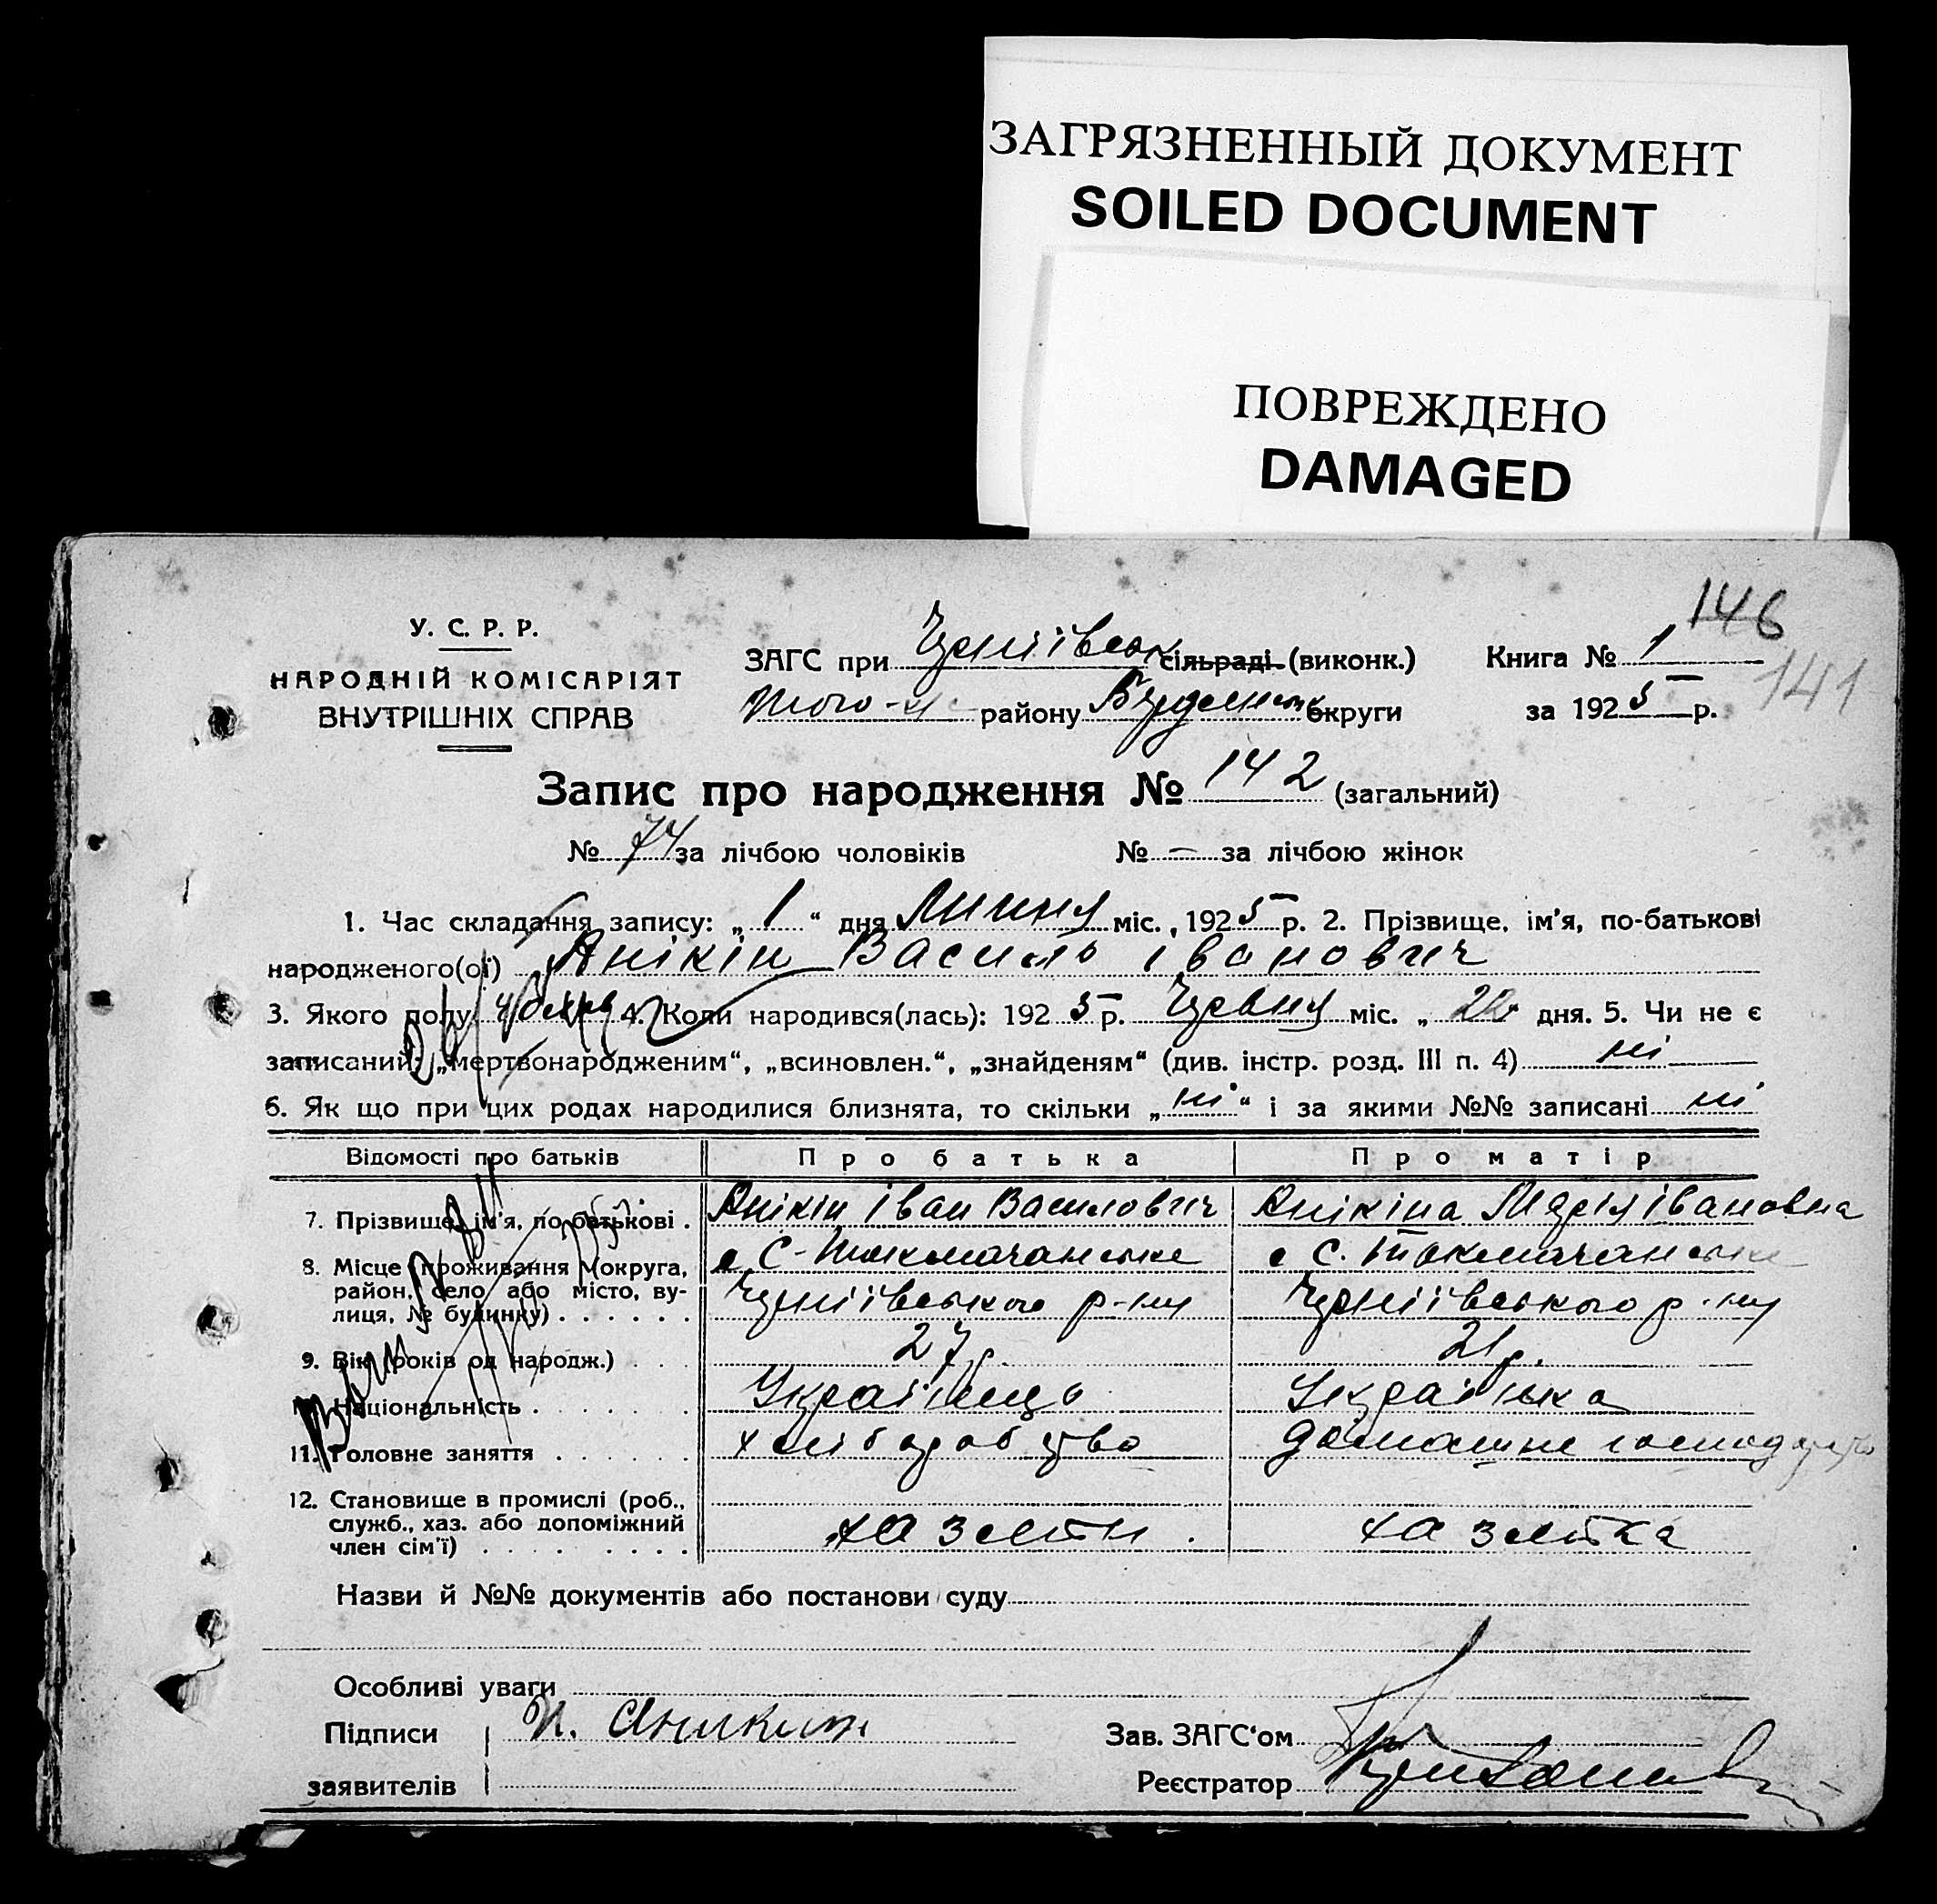 ЗАГРЯЗНЕННЫЙ ДОКУМЕНТ
SOILED DOCUMENT
ПОВРЕЖДЕНО
DAMAGED
146
У. С. Р. Р.
НАРОДНІЙ КОМІСАРІЯТ
ВНУТРІШНІХ СПРАВ
ЗАГС при сільраді (виконк.) Книга № 1
141
району округи за 1925 р.
Запис про народження № 142 (загальний)
№ 74 за лічбою чоловіків № — за лічбою жінок
1. Час складання запису: „ 1 “ дня Липня міс., 1925 р. 2. Прізвище, ім'я, по-батькові
народженого(ої) Анікін Василь Іванович
3. Якого полу 4. Коли народився(лась): 1925 р. Червня міс. „ дня. 5. Чи не є
записаний: „мертвонародженим“, „всиновлен.“, „знайденям“ (див. інстр. розд. III п. 4) ні
6. Як що при цих родах народилися близнята, то скільки „ ні “ і за якими №№ записані ні
Відомості про батьків Про батька Про матір
7. Прізвище, ім'я, по батькові . Анікін Іван Василович Анікіна Марія Івановна
8. Місце проживання (округа, район, село або місто, вулиця, № будинку) . . . . . . с. Токмачанське с. Токмачанське
р-ну р-ну
9. Вік (років од народж.) . . . 27 р. 21 р.
Національність . . . . . . . Українець Українка
11. Головне заняття . . . . . . хліборобство домашнє господарство
12. Становище в промислі (роб.,
служб., хаз. або допоміжний
член сім'ї) . . . . . . . .
Назви й №№ документів або постанови суду
Особливі уваги
Підписи И. Аникин Зав. ЗАГС'ом
заявителів Реєстратор